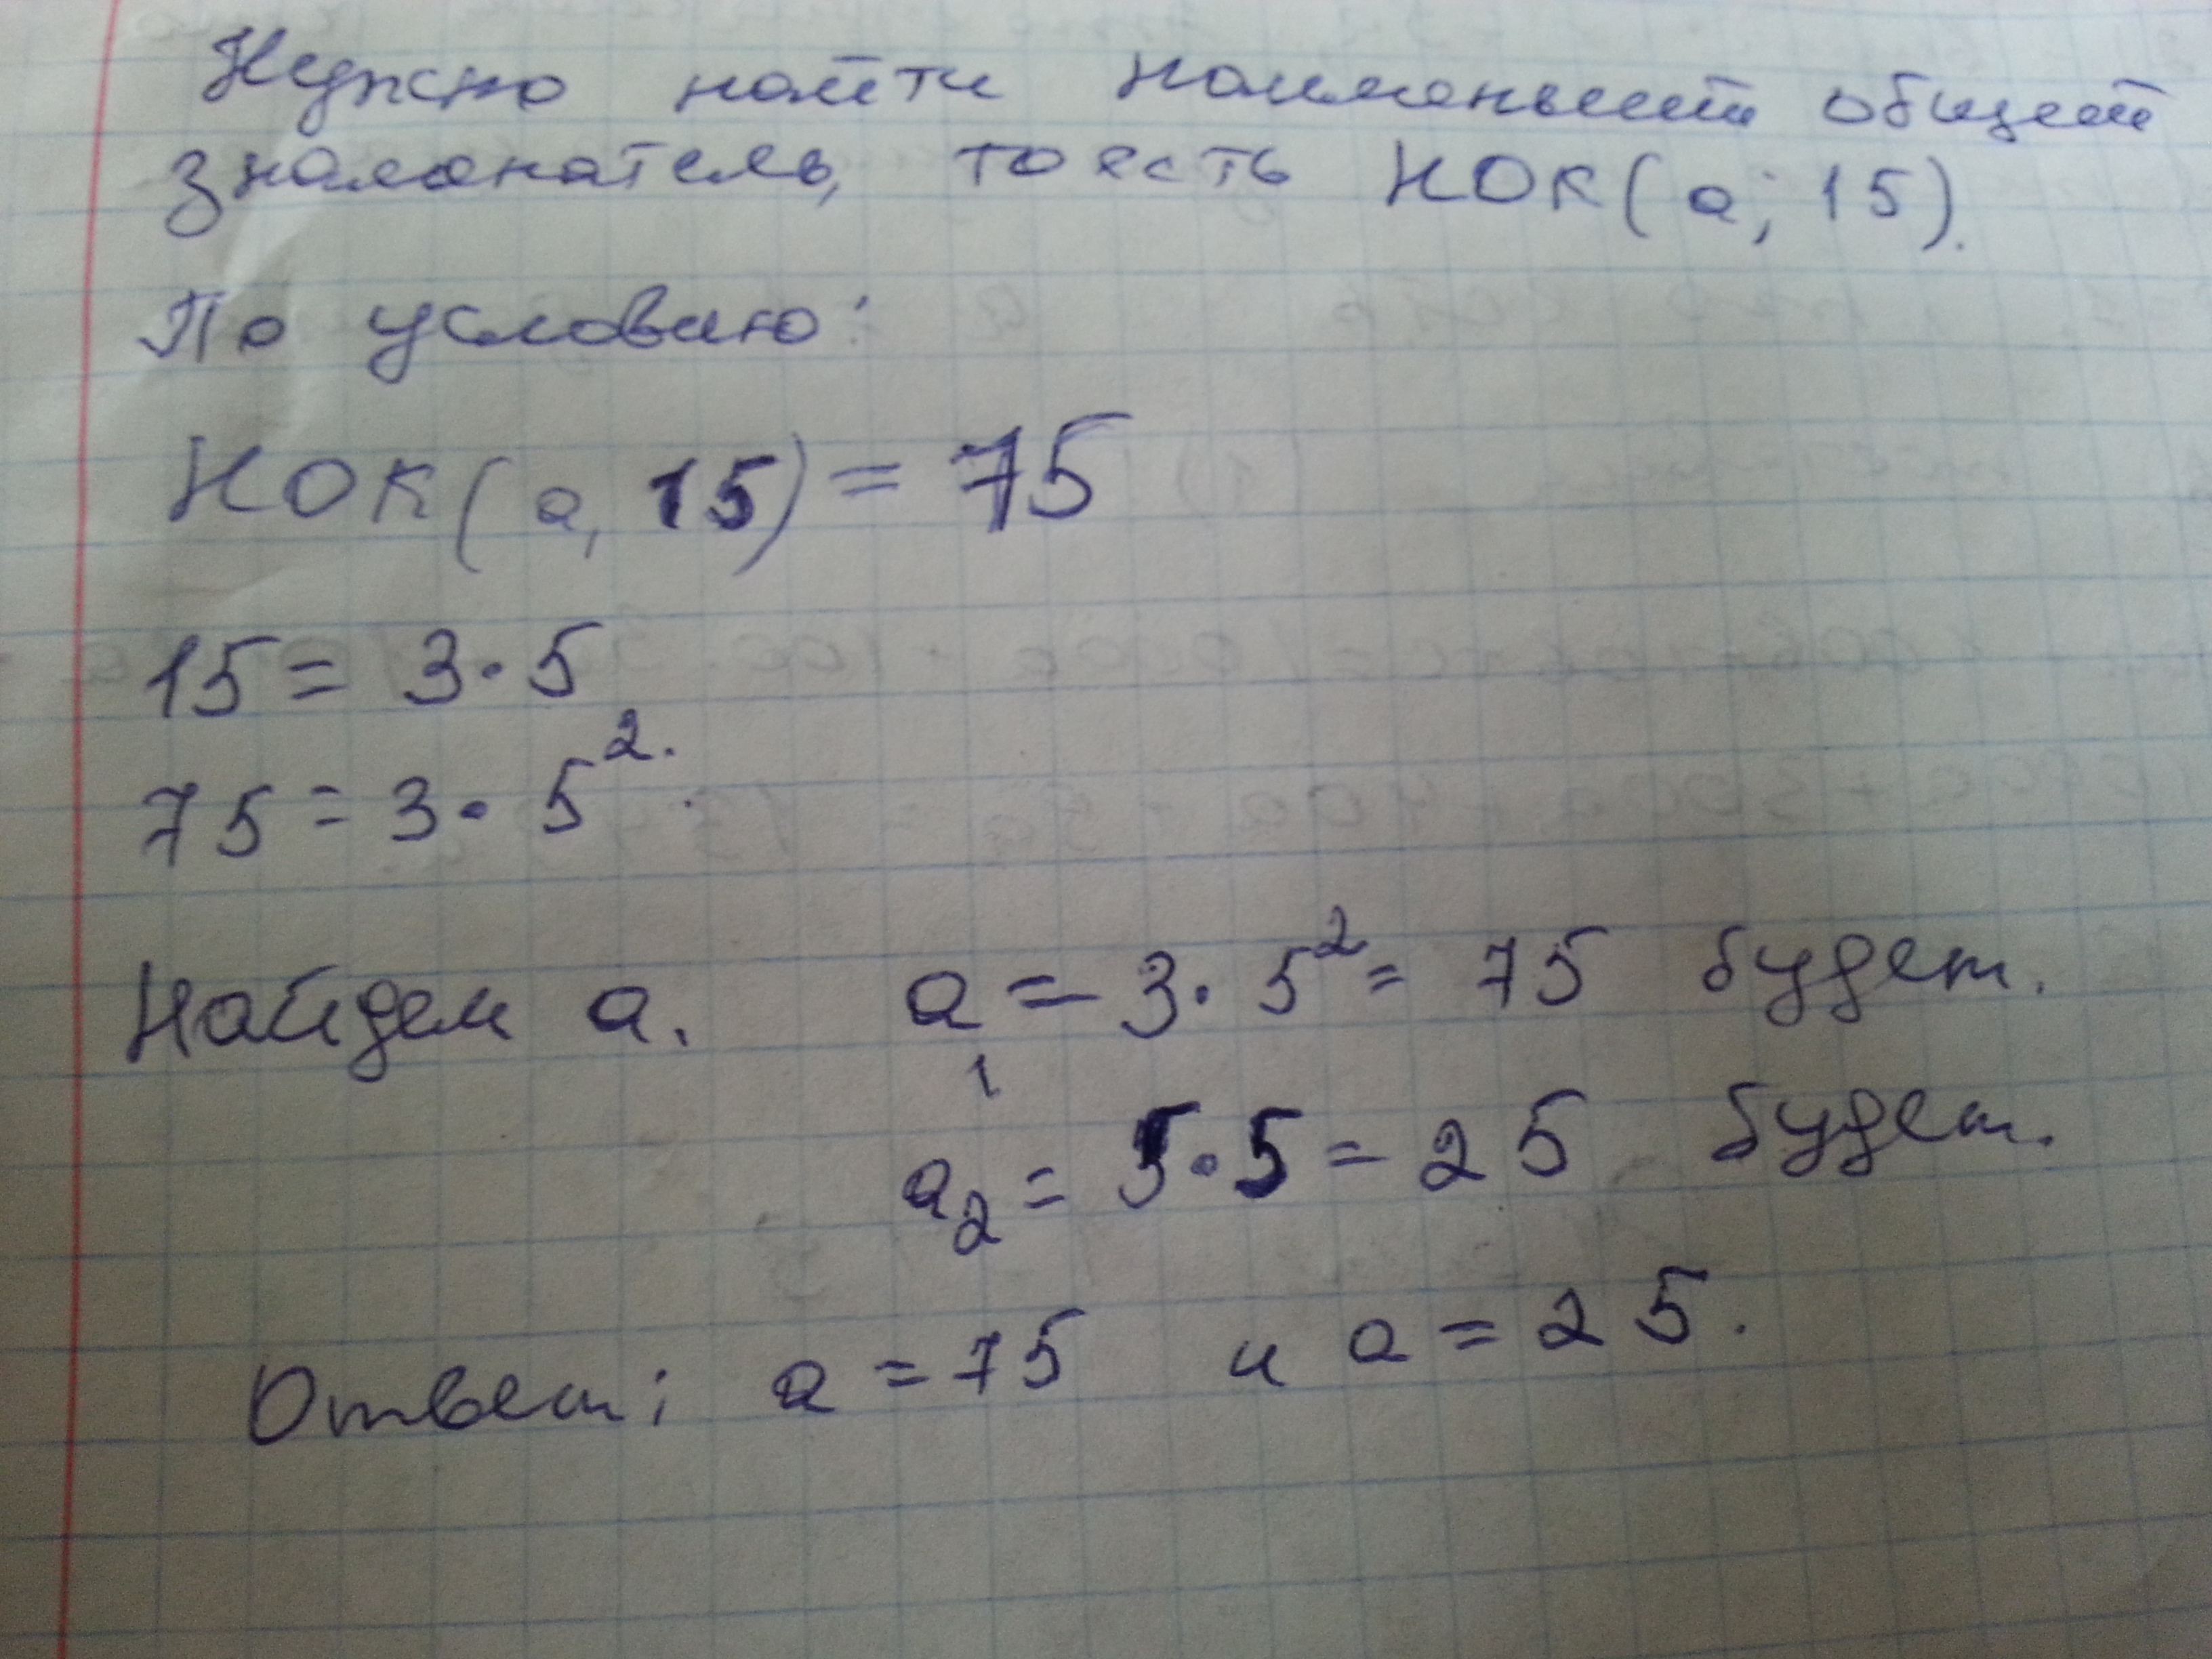 Нужно найти наименьший общий
знаменатель, то есть НОК(а; 15).
По условию:
НОК(а, 15) = 75
15 = 3·5
75 = 3·5².
Найдем а. а₁ = 3·5² = 75 будет.
а₂ = 5·5 = 25 будет.
Ответ: а = 75 и а = 25.